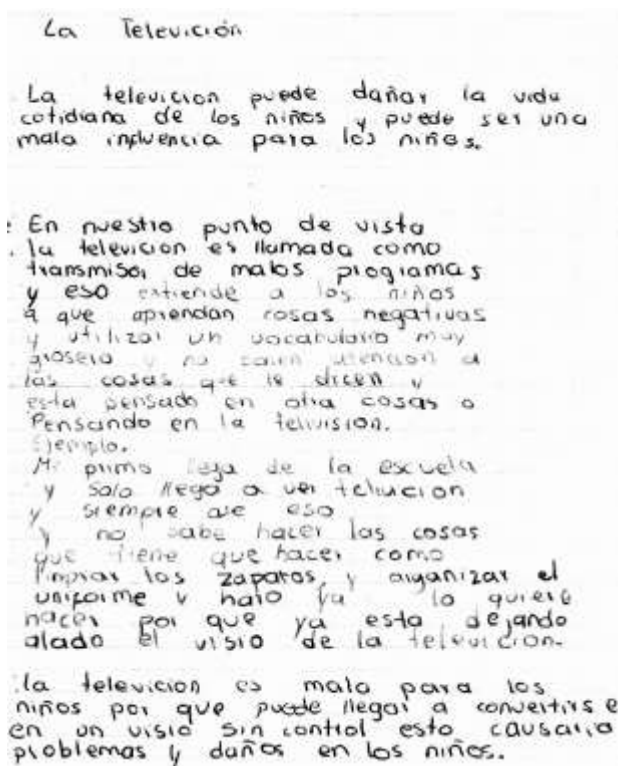 La Televición
La televicion puede dañar la vida
cotidiana de los niños y puede ser una
mala influencia para los niños.
En nuestro punto de vista
la television es llamada como
transmisor de malos programas
y eso extiende a los niños
a que aprendan cosas negativas
y utilizar un vocabulario muy
grosero y no atencion a
las cosas que le dicen y
esta pensado en otra cosas o
Pensando en la telivision.
Ejemplo.
Mi primo llega de la escuela
y solo llega a ver telivicion
y siempre eso
y no sabe hacer las cosas
que tiene que hacer como
limpiar los zapatos, y organizar el
uniforme y ya lo quiere
hacer por que ya esta dejando
alado el visio de la televicion.
la televicion es mala para los
niños por que puede llegar a convertirse
en un visio sin control esto causaria
problemas y daños en los niños.